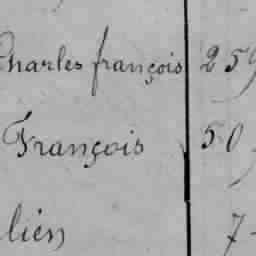 Charles françois 259
François 50
lien 7